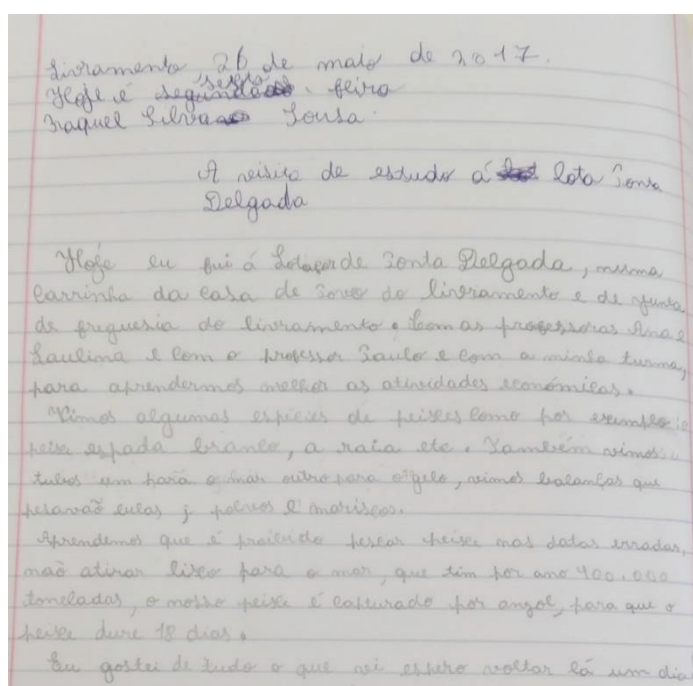 Livramento 26 de maio de 2017.
sexta
Hofe é segunda feira
Raquel Silva Sousa
A visita de estudo á lota Ponta
Delgada
Hofe eu fui á Lotaçor de Ponta Delgada, numa
carrinha da casa de Povo do livramento e de junta
de freguesia do livramento. Com as professoras Ana e
Paulina e com o professor Paulo e com a minha turma,
para aprendermos melhor as atividades económicas.
Vimos algumas espécies de peixes como por exemplo: o
peixe espada branco, a raia etc. Também vimos
tubos um para o mar outro para o gelo, vimos balanças que
pesavaõ lulas; polvos e mariscos.
Aprendemos que é proibido pescar peixe nas datas erradas,
naõ atirar lixo para o mar, que tim por ano 400.000
toneladas, o nosso peixe é capturado por anzol, para que o
peixe dure 18 dias.
Eu gostei de tudo o que vi espero voltar lá um dia